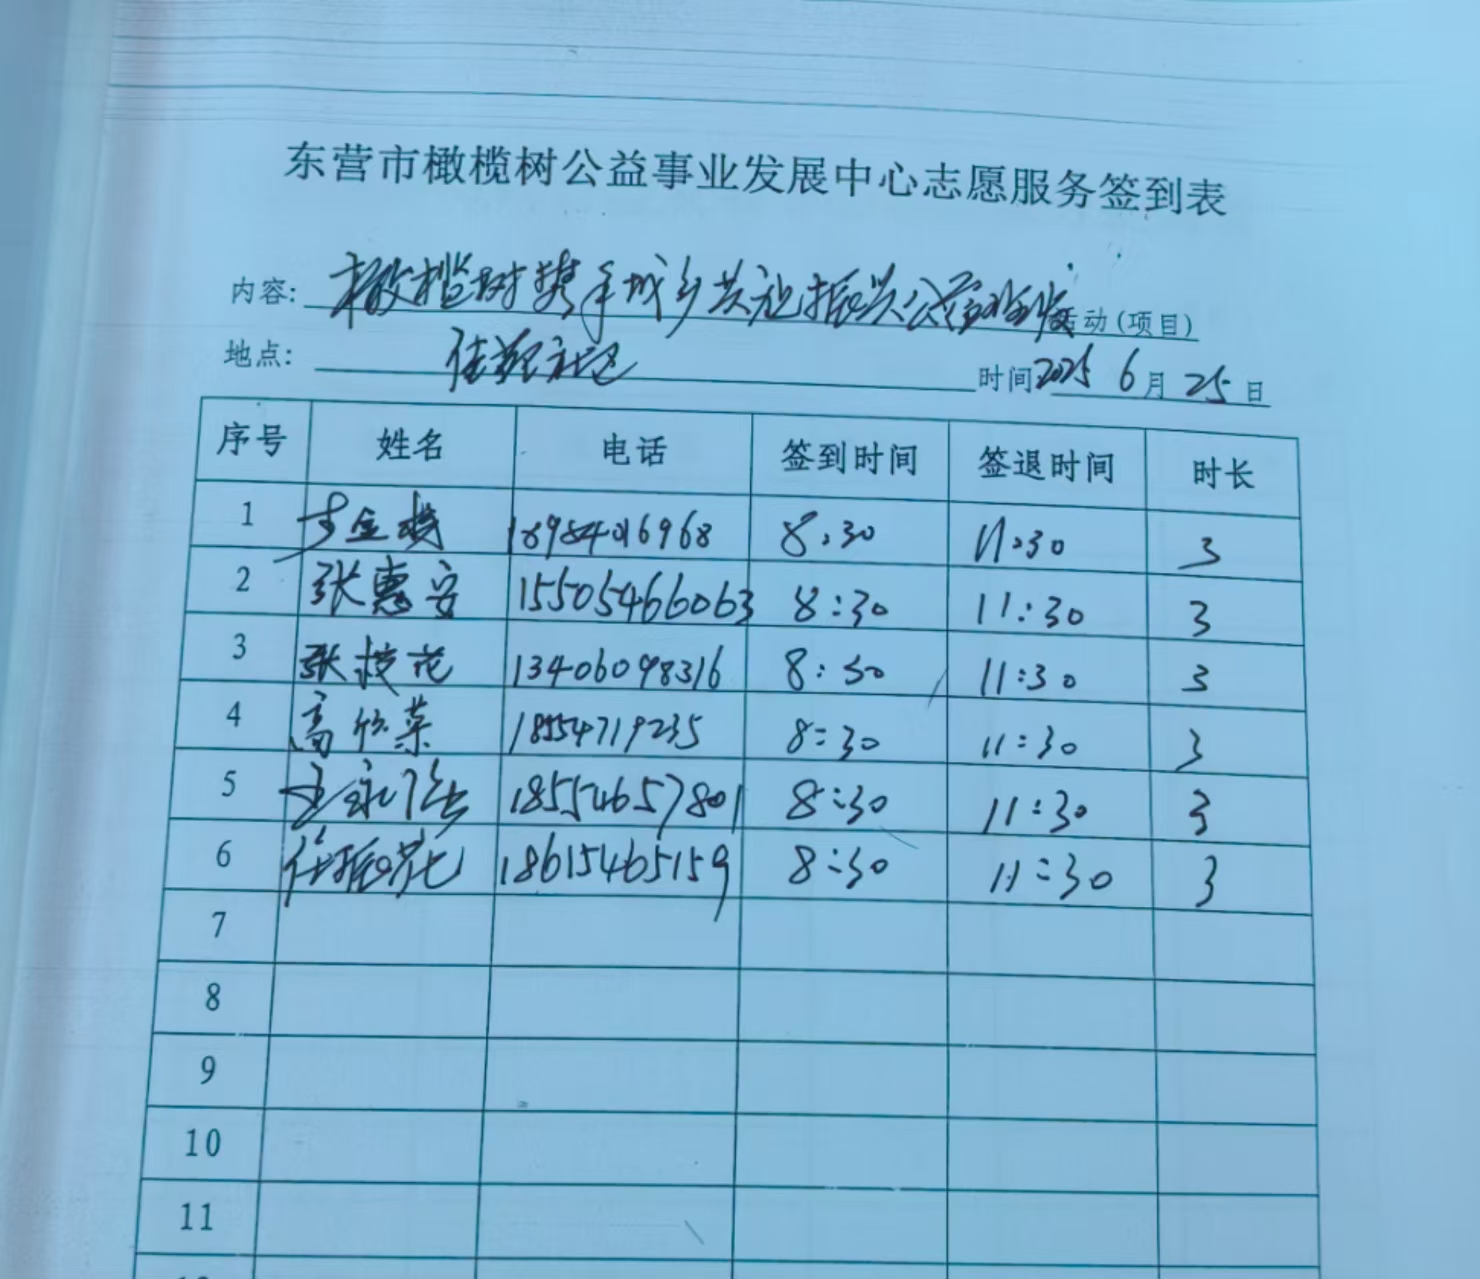 东营市橄榄树公益事业发展中心志愿服务签到表
内容: 橄榄树携手城乡共 振兴公益 活动(项目)
地点: 社区 时间 2025 6月25日
序号 姓名 电话 签到时间 签退时间 时长
1 8:30 11:30 3
2 张惠安 15505466063 8:30 11:30 3
3 张 花 13406098316 8:30 11:30 3
4 高欣菜 18554719235 8:30 11:30 3
5 永 18554657801 8:30 11:30 3
6 任振花 18615465159 8:30 11:30 3
7
8
9
10
11